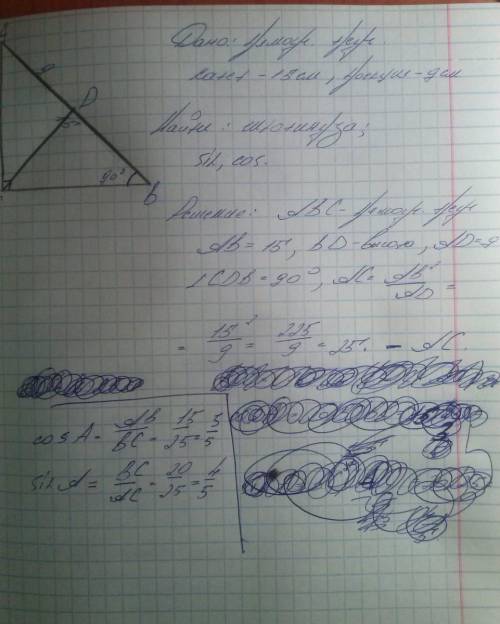 9
D
15
90°
B
Дано: прямоуг. треуг.
катет - 15 см, проекция - 9 см
Найти: гипотенуза;
sin, cos.
Решение: ABC - прямоуг. треуг
AB = 15, BD - высота, AD = 9
∠CDB = 90°, AC = AB²/AD =
= 15²/9 = 225/9 = 25. - AC.
cos A = AB/BC = 15/25 = 3/5
sin A = BC/AC = 20/25 = 4/5